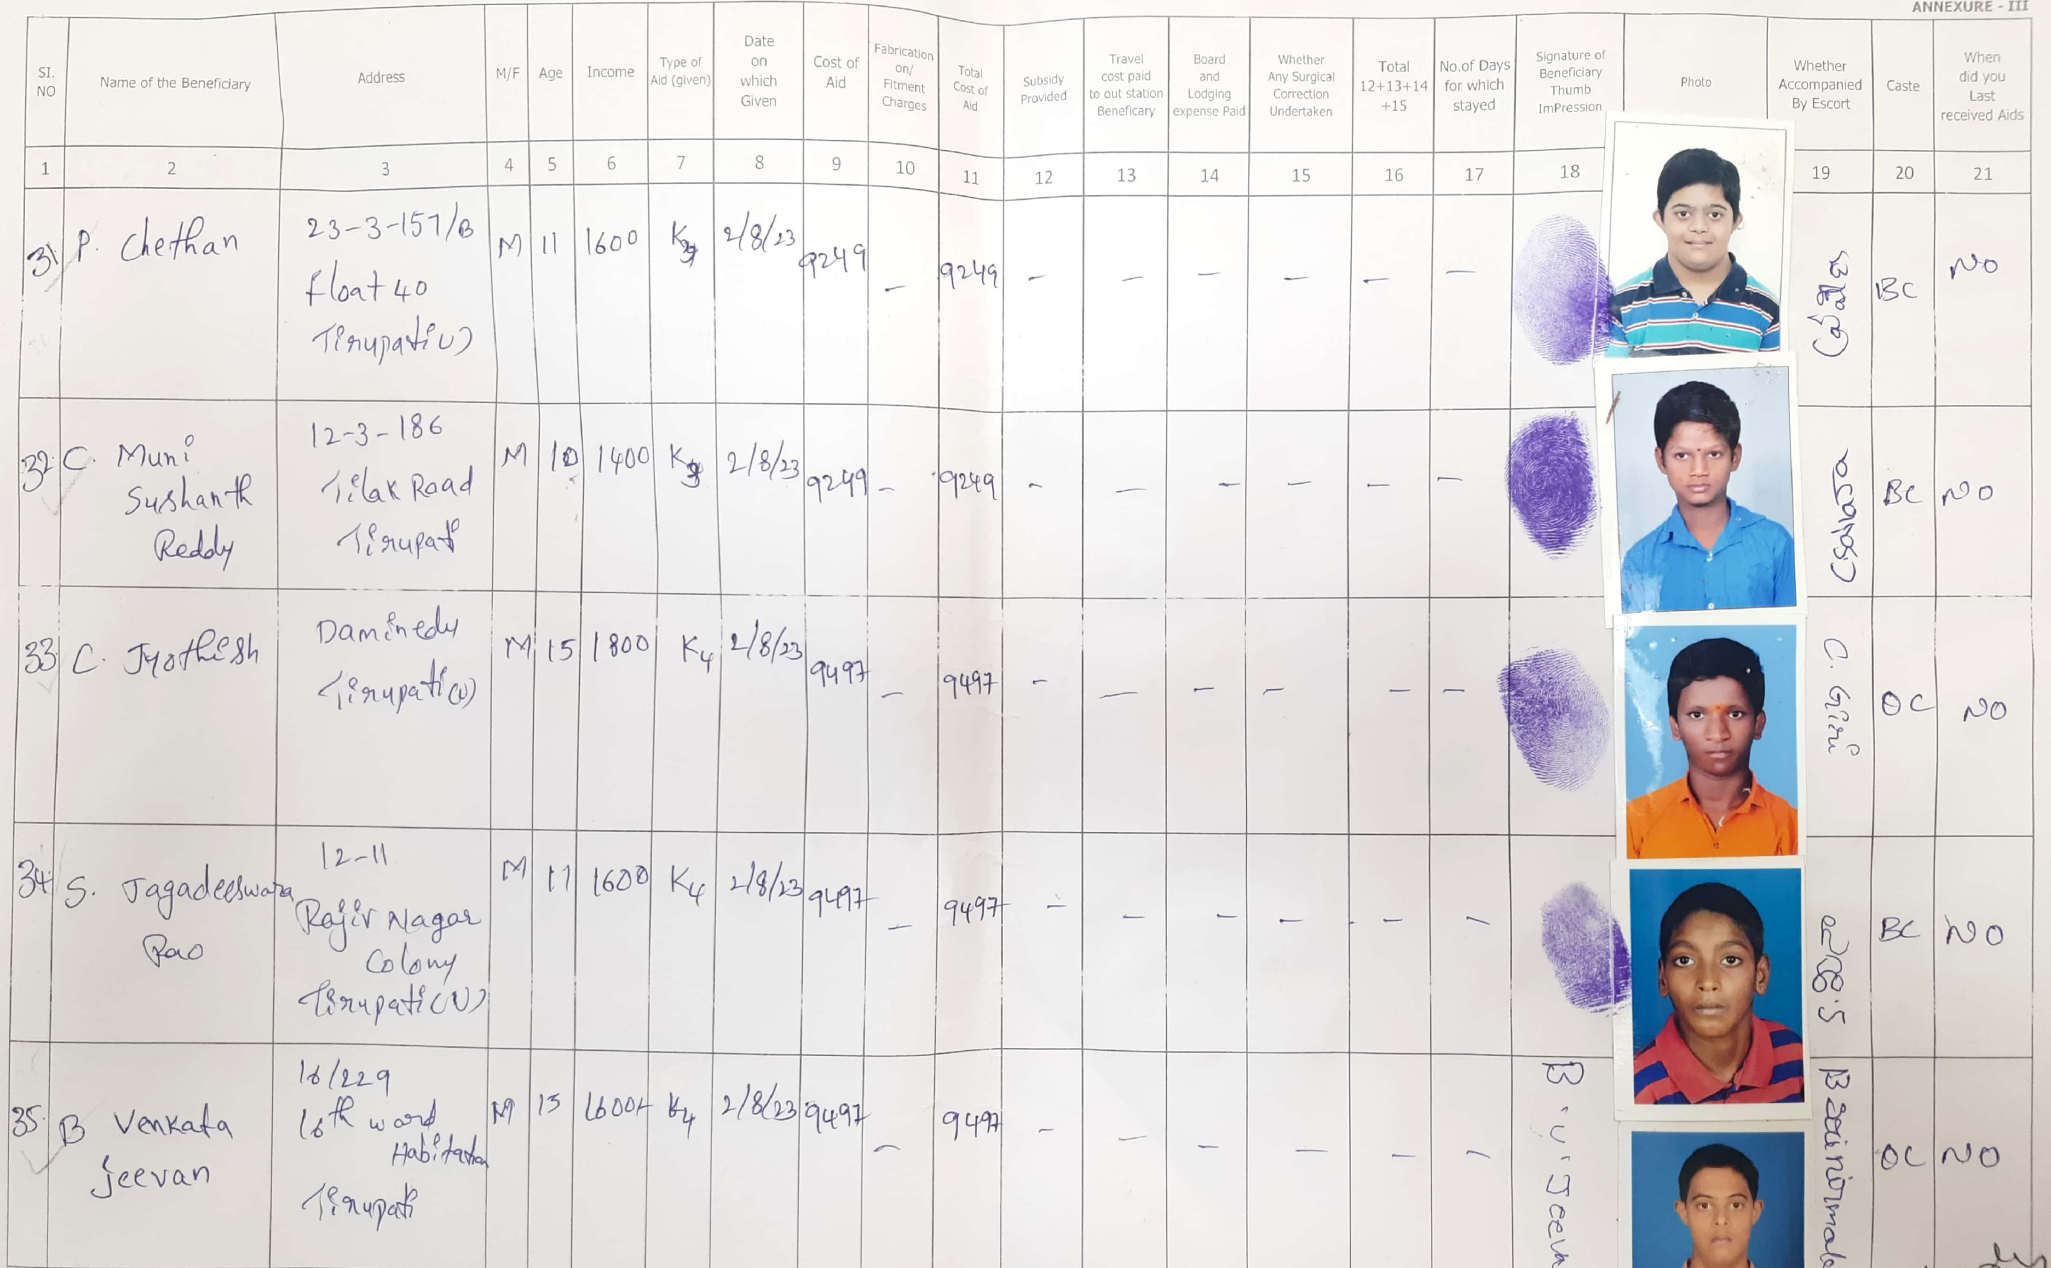 ANNEXURE - III
SI. NO
Name of the Beneficiary
Address
M/F
Age
Income
Type of Aid (given)
Date on which Given
Cost of Aid
Fabrication on/ Fitment Charges
Total Cost of Aid
Subsidy Provided
Travel cost paid to out station Beneficary
Board and Lodging expense Paid
Whether Any Surgical Correction Undertaken
Total 12+13+14 +15
No.of Days for which stayed
Signature of Beneficiary Thumb ImPression
Photo
Whether Accompanied By Escort
Caste
When did you Last received Aids
1 2 3 4 5 6 7 8 9 10 11 12 13 14 15 16 17 18 19 20 21
31 P. Chethan
23-3-157/B
float 40
Tirupati(U)
M 11 1600 K3 2/8/23 9249 – 9249 – – – – – – BC NO
32 C. Muni
Sushanth
Reddy
12-3-186
Tilak Road
Tirupati
M 10 1400 K3 2/8/23 9249 – 9249 – – – – – – BC NO
33 C. Jyothish
Daminedu
Tirupati(U)
M 15 1800 K4 2/8/23 9497 – 9497 – – – – – – OC NO
34 S. Jagadeeswara
Rao
12-11
Rajiv Nagar
Colony
Tirupati(U)
M 17 1600 K4 2/8/23 9497 – 9497 – – – – – – BC NO
35 B Venkata
jeevan
16/229
16th word
Habitation
Tirupati
M 15 1600 K4 2/8/23 9497 – 9497 – – – – – – B.V.Jeevan OC NO